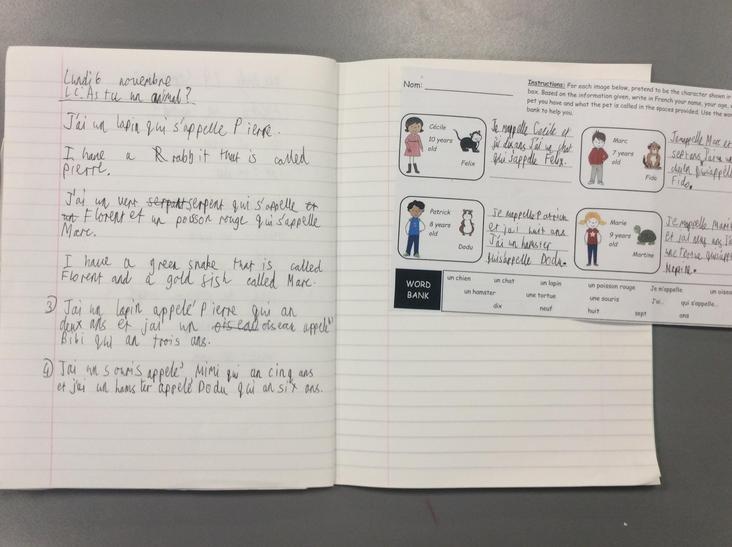 Lundi 6 novembre
LC: As tu un animal?
J'ai un lapin qui s'appelle Pierre.
I have a Rrabbit that is called
pierre.
J'ai un vert serpant serpent qui s'appelle et
Florent et un poisson rouge qui s'appelle
Marc.
I have a green snake that is called
Florent and a gold fish called Marc.
3) J'ai un lapin appelé Pierre qui an
deux ans et j'ai un oiseau appelé
Bibi qui an trois ans.
4) J'ai un souris appelé Mimi qui an cinq ans
et j'ai un hamster appelé Dodu qui an six ans.
Nom:
Instructions: For each image below, pretend to be the character shown in
box. Based on the information given, write in French your name, your age,
pet you have and what the pet is called in the spaces provided. Use the wo
bank to help you.
Cécile
10 years
old
Felix
Je m'appelle Cecile et
j'ai dix ans J'ai un chat
qui s'appelle Felix.
Marc
7 years
old
Fido
Je m'appelle Marc et
sept ans J'ai un
chien qui s'appelle
Fido.
Patrick
8 years
old
Dodu
Je m'appelle Patrick
et j'ai huit ans
J'ai un hamster
qui s'appelle Dodu.
Marie
9 years
old
Martine
Je m'appelle Marie
Et j'ai neuf ans J'ai
une tortue
WORD
BANK
un chien un chat un lapin un poisson rouge Je m'appelle un oise
un hamster une tortue une souris J'ai... qui s'appelle...
dix neuf huit sept ans